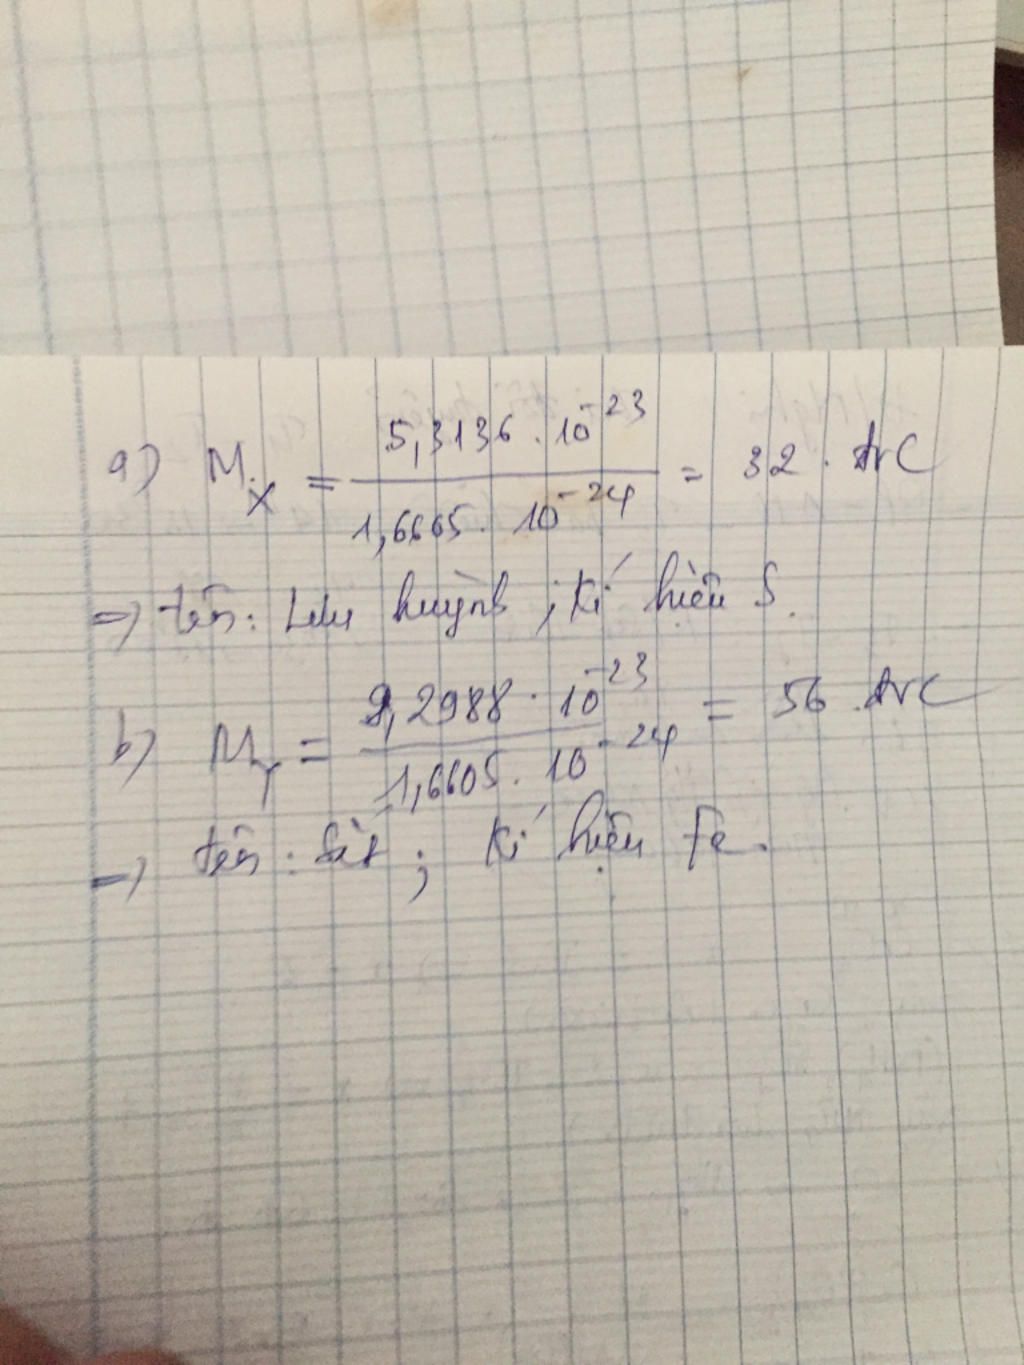 a) M_X = 5,3136 . 10^-23 / 1,6665 . 10^-24 = 32 . đvC
=> tên: Lưu huỳnh ; Kí hiệu S.
b) M_Y = 9,2988 . 10^-23 / 1,6605 . 10^-24 = 56 . đvC
=> tên : Sắt ; Kí hiệu Fe.